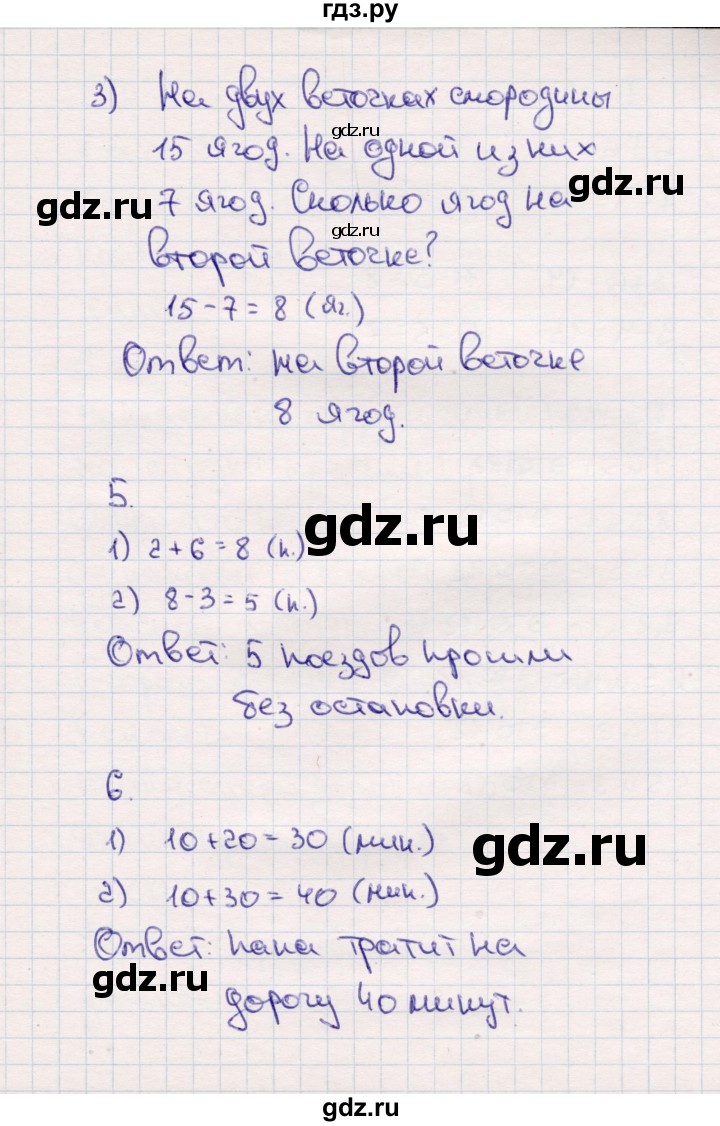 гдз.ру
3) На двух веточках смородины
gdz.ru
15 ягод. На одной из них
gdz.ru
gdz.ru
7 ягод. Сколько ягод на
gdz.ru
второй веточке?
15-7=8 (яг.)
Ответ: на второй веточке
8 ягод.
5.
gdz.ru
1) 2+6=8 (п.)
2) 8-3=5 (п.)
Ответ: 5 поездов прошли
без остановки.
6.
1) 10+20=30 (мин.)
gdz.ru
2) 10+30=40 (мин.)
Ответ: папа тратит на
gdz.ru
дорогу 40 минут.
gdz.ru